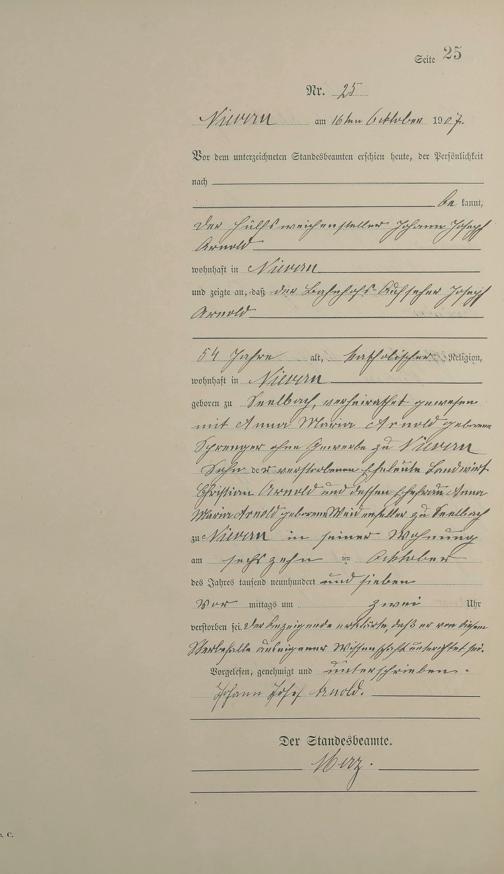 Seite 25
Nr. 25
Nievern am 16ten Oktober 1907.
Vor dem unterzeichneten Standesbeamten erschien heute, der Persönlichkeit
nach
be kannt,
der Hülfsweichensteller Johann Joseph
Arnold
wohnhaft in Nievern
und zeigte an, daß der Bahnhofs-Aufseher Joseph
Arnold
54 Jahre alt, katholischer Religion,
wohnhaft in Nievern
geboren zu Seelbach, verheirathet gewesen
mit Anna Maria Arnold geborene
Sprenger ohne Gewerbe zu Nievern
Sohn der verstorbenen Eheleute Landwirt
Christian Arnold und dessen Ehefrau Anna
Maria Arnold geborene Weidenfeller zu Seelbach
zu Nievern in seiner Wohnung
am sechszehn ten Oktober
des Jahres tausend neunhundert und sieben
Vor mittags um zwei Uhr
verstorben sei. Der Anzeigende erklärte, daß er von diesem
Sterbefalle aus eigener Wissenschaft unterrichtet sei.
Vorgelesen, genehmigt und unterschrieben.
Johann Josef Arnold.
Der Standesbeamte.
Merz.
C.